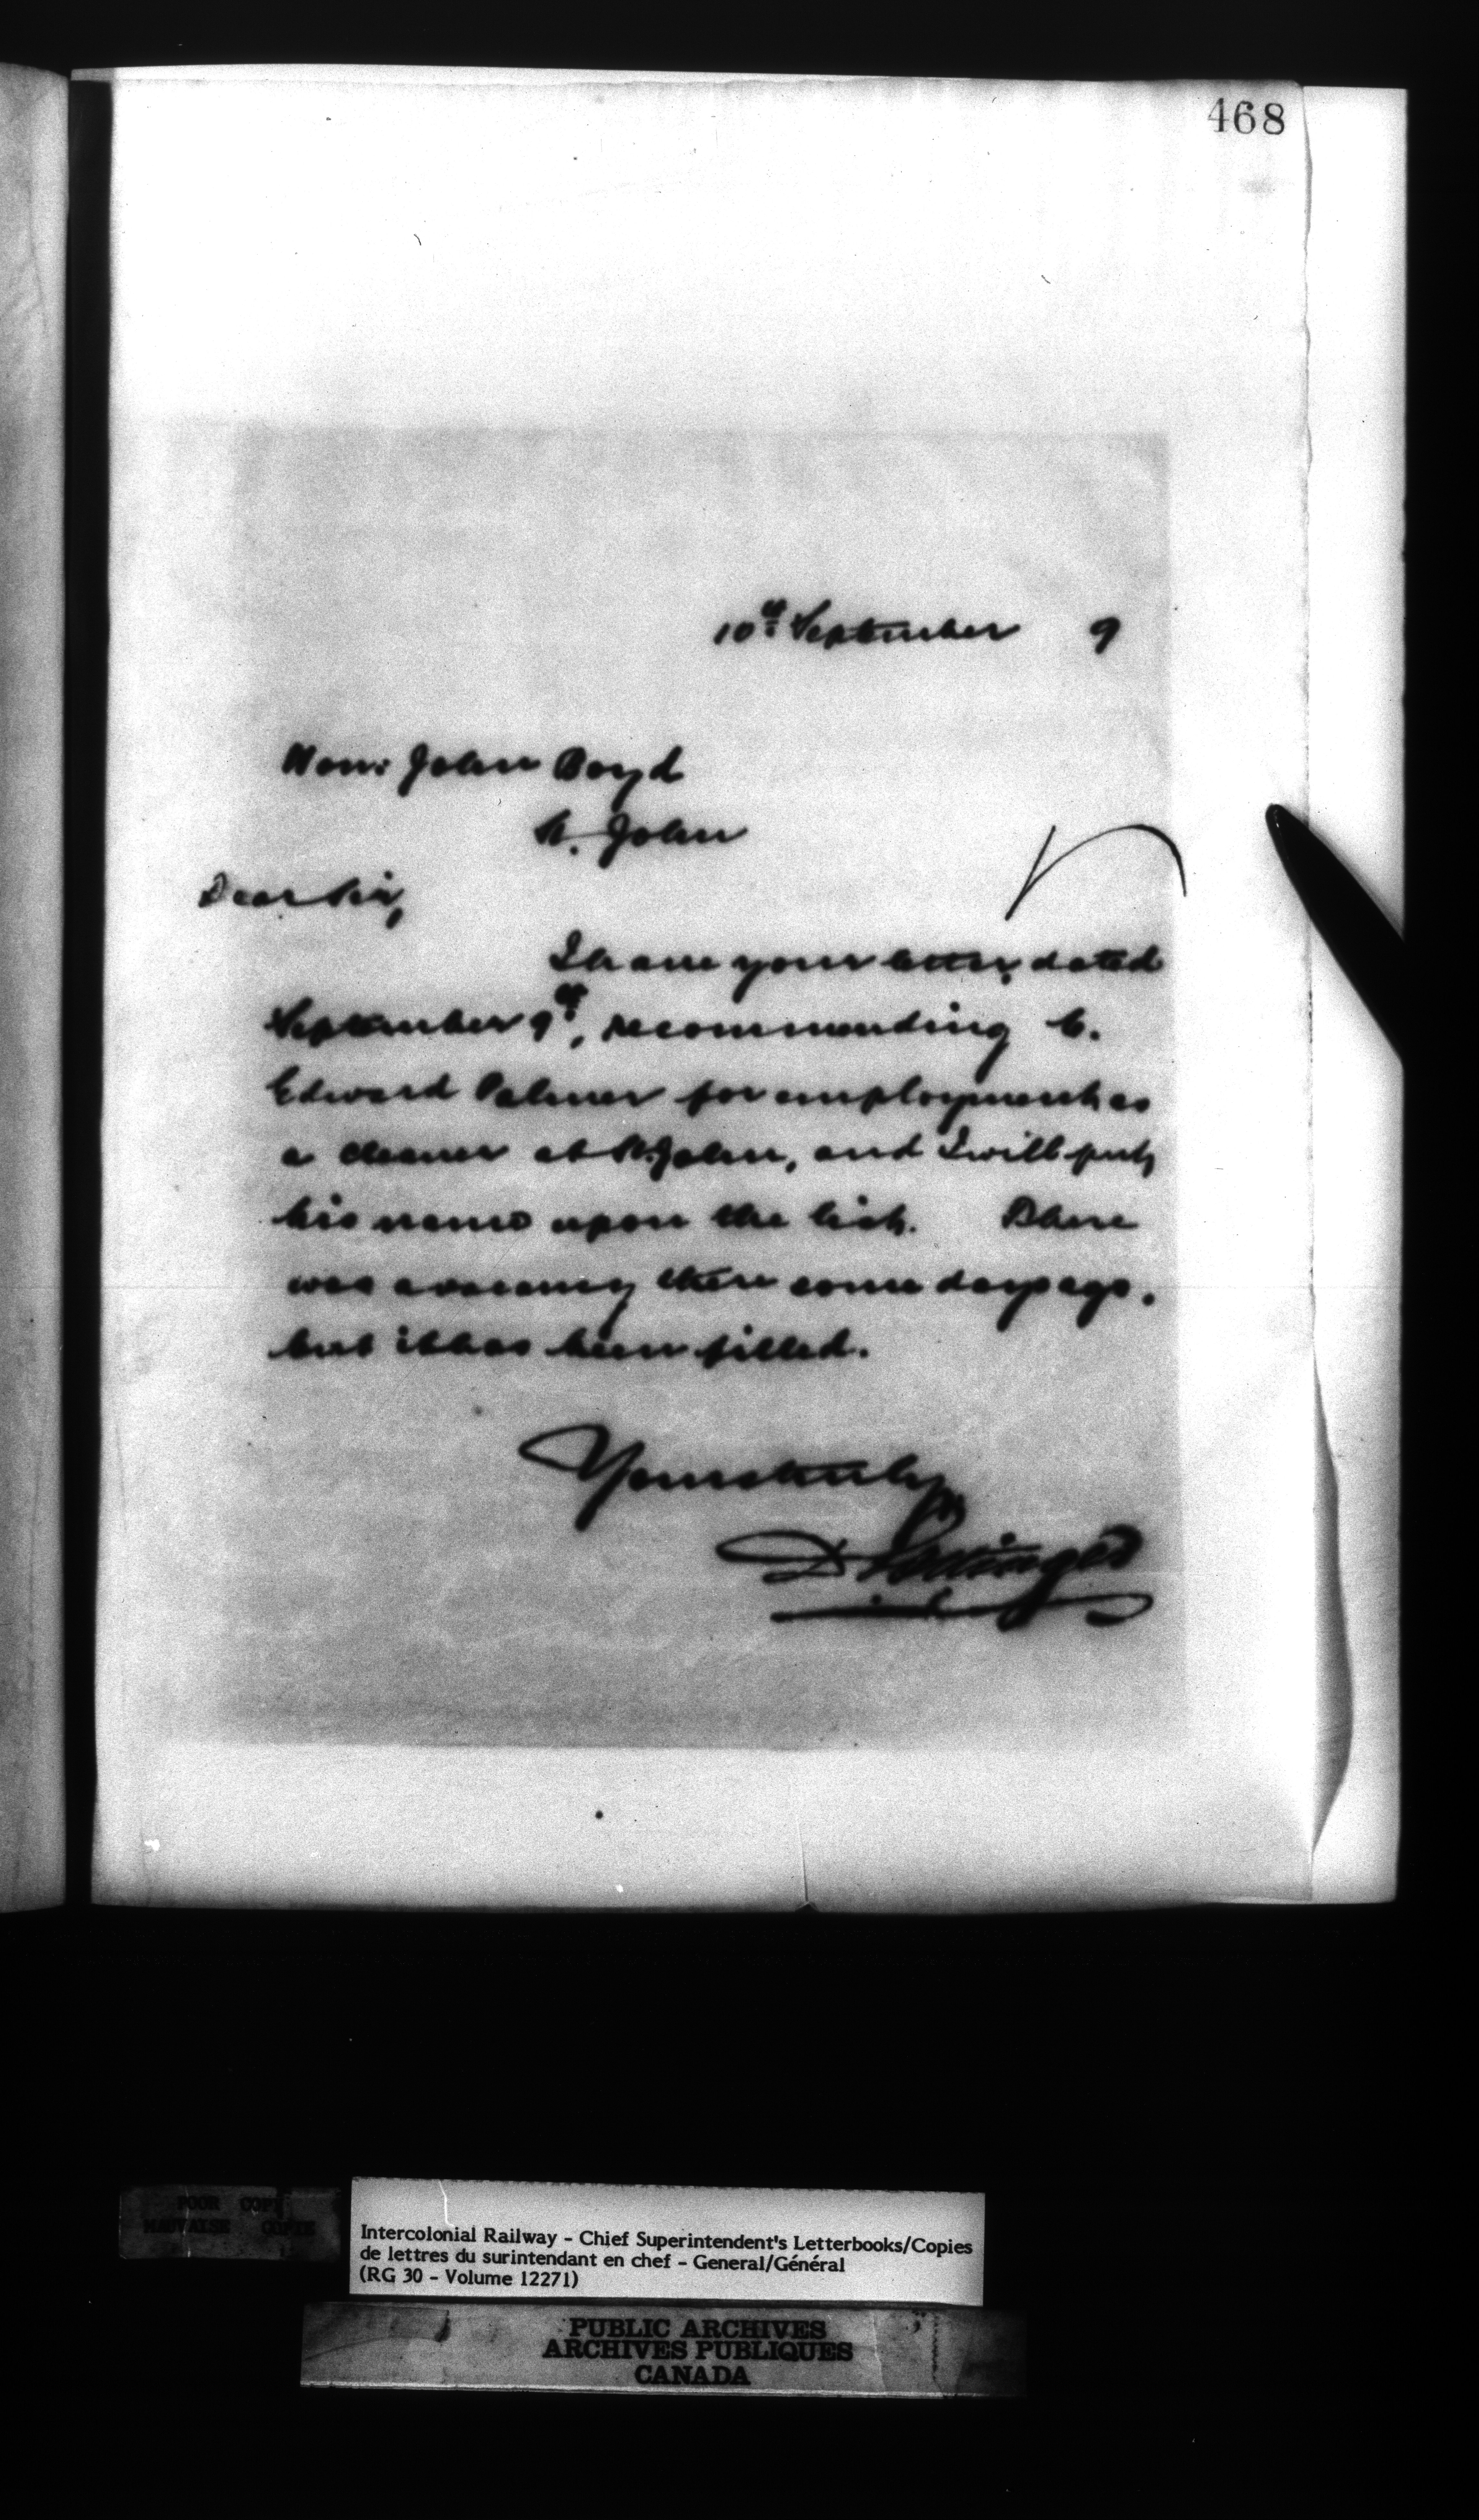 468
10th September 9
Hon: John Boyd
St. John
Dear Sir,
I have your letter dated
September 9th, recommending C.
Edward Palmer for employment as
a cleaner at St. John, and I will put
his name upon the list. There
was a vacancy there some days ago.
but it has been filled.
Yours truly
D Pottinger
POOR COPY
MAUVAISE COPIE
Intercolonial Railway - Chief Superintendent's Letterbooks/Copies
de lettres du surintendant en chef - General/Général
(RG 30 - Volume 12271)
PUBLIC ARCHIVES
ARCHIVES PUBLIQUES
CANADA